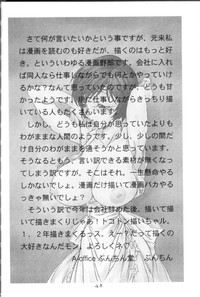 さて何が言いたいかという事ですが、元来私
は漫画を読むのも好きだが、描くのはもっと好
き。といういわゆる漫画野郎です。会社に入れ
ば同人なら仕事しながらでも何とかやっていけ
るかな？なんて思っていたのですが、どうも甘
かったようです。
いる人もたくさんいます。
しかし、どうも私は自分で思っていたよりも
わがままな人間のようです。少し、少しの間だけ
自分のわがままを通そうかと思っています。
そうなるともう、言い訳できる素材が無くなっ
てしまう訳ですが、そこはそれ、一生懸命やる
しかないでしょ。漫画だけ描いて漫画バカやる
っきゃ無いでしょ？
そういう訳で今年は会社辞めた後、描いて描
いて描きまくりじゃあ！トコトン描いちゃル。
１、２年描きまくるっス。えー？だって漫画の
大好きなんだモン。よろしくネ♡
A-office ぶんちん堂　ぶんちん